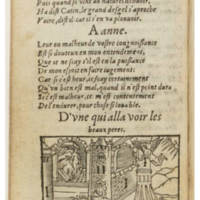 Puis quand si vint au naturel
Il a dist Catin, le grand desgel s'aproche
Voire, dist il car il s'en va plouvoir.
A anne.
Leur ou malheur de vostre congnoissance
Est si douteux en mon entendement,
Que ie ne sçay s'il est en la puissance
De mon esprit en faire iugement:
Car si c'est heur, ie sçay certainement
Qu'un bien est mal, quand il n'est point dura
Si c'est malheur, ce m'est contentement
De l'endurer, pour chose si louable.
D'vne qui alla voir les
beaux peres.